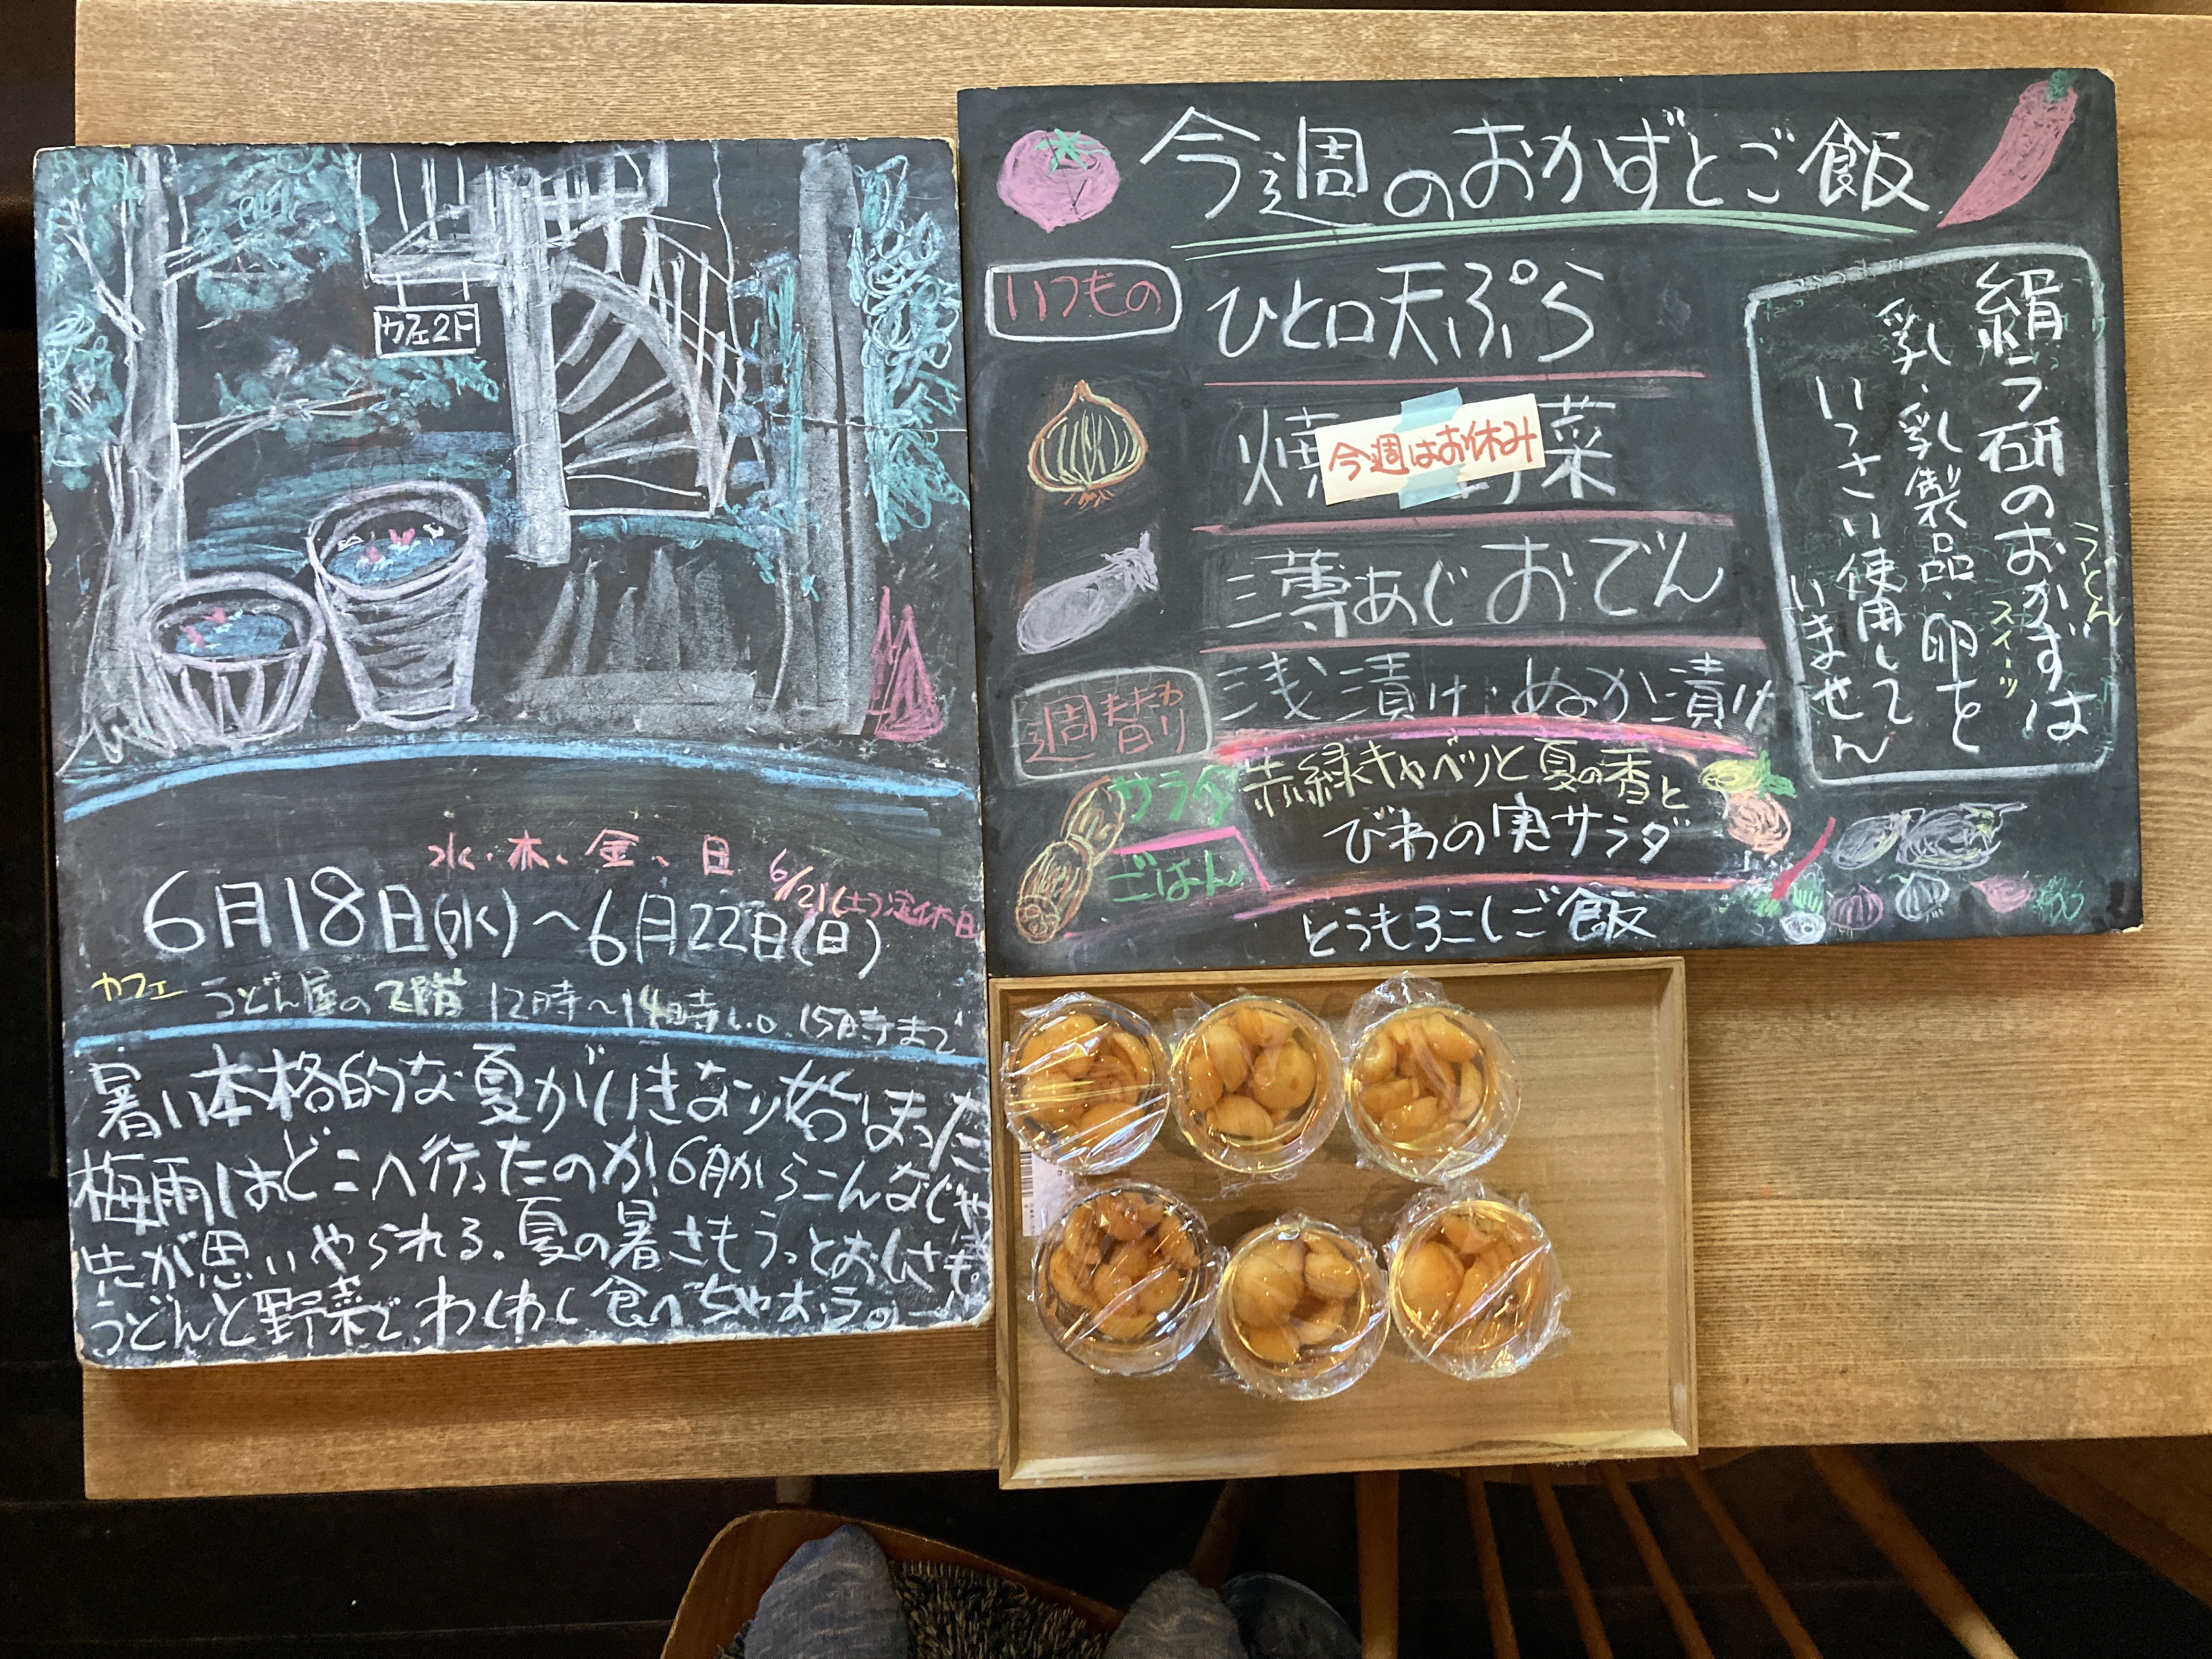 カフェ2F
水・木、金、日
6/21(土)定休日
6月18日(水)〜6月22日(日)
カフェ うどん屋の2階 12時〜14時L.O. 15時まで
暑い本格的な夏がいきなり始まった
梅雨はどこへ行ったのか 6月からこんなじゃ
先が思いやられる。夏の暑さもうっとおしさも
うどんと野菜で、わしわし食べちゃおうの一
今週のおかずとご飯
いつもの
ひと口天ぷら
焼 菜
今週はお休み
薄あじおでん
浅漬け・ぬか漬け
週替わり
サラダ 赤緑キャベツと夏の香と
びわの実サラダ
ごはん
とうもろこしご飯
絹う研のおかずは
うどん
スイーツ
乳・乳製品・卵を
いっさい使用して
いません